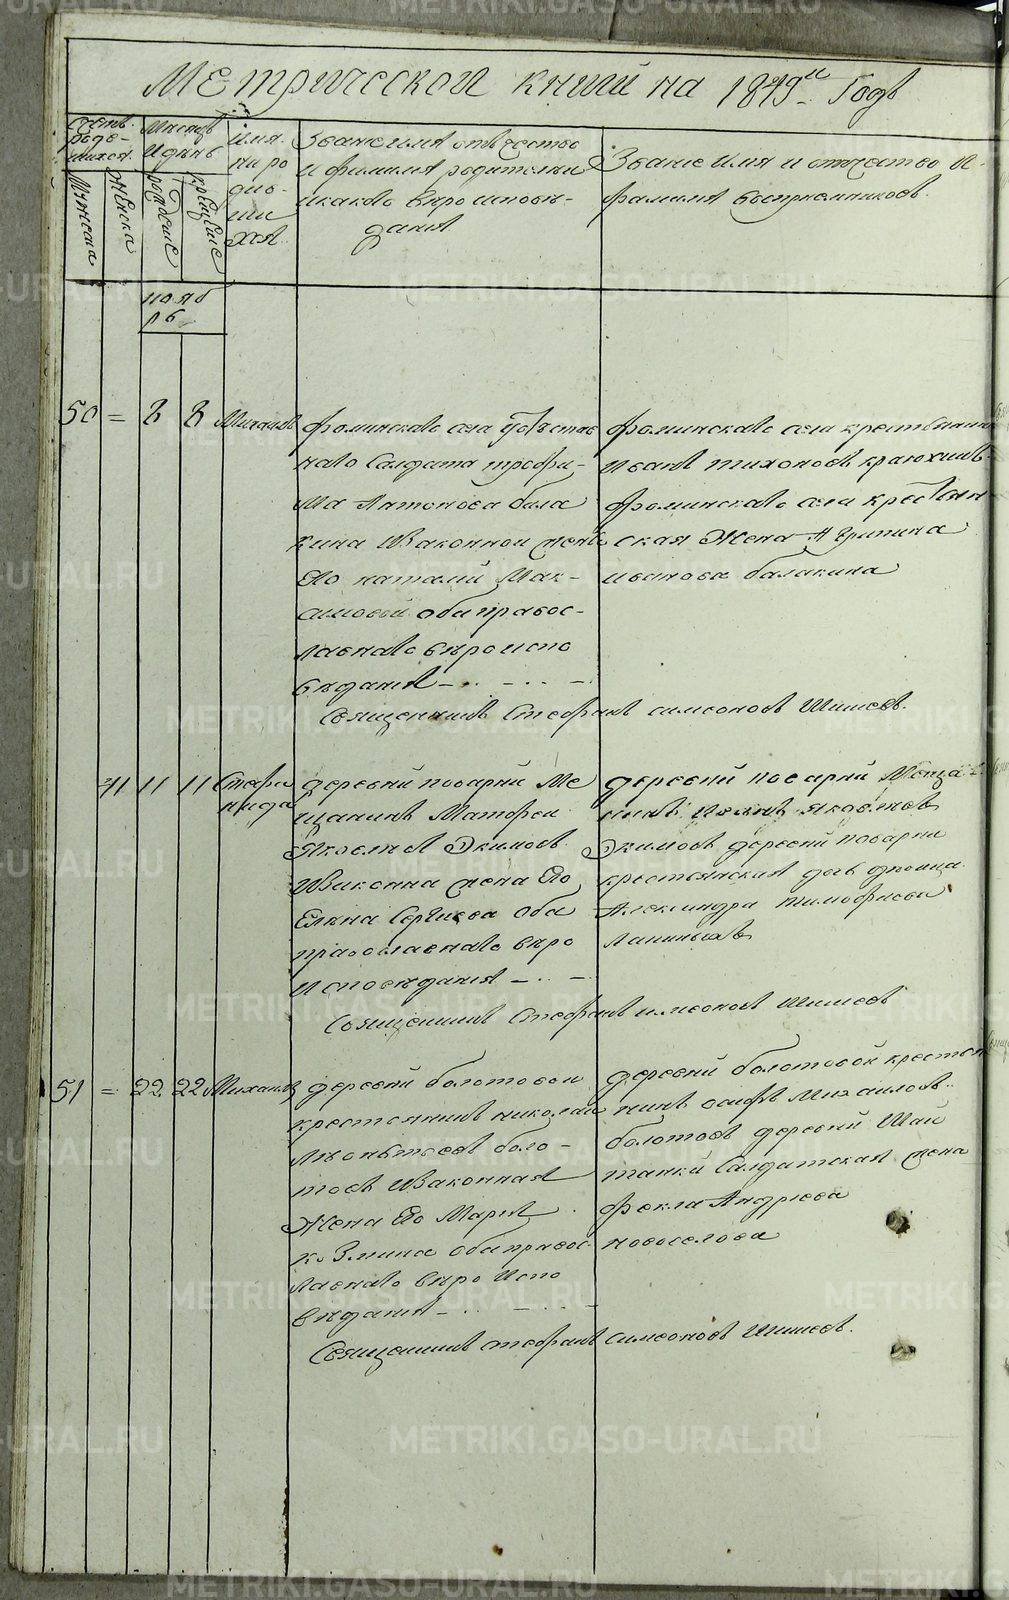 Метрической книги на 1879й Годъ
Счетъ родившихся
Мужеска
Женска
Месяцъ И день
рождение
крещение
имя ни родившихся
Звание имя отечество
и фамилия родителей
и какаго вероиспове-
дания
Звание Имя и отчество И
фамилия восприемниковъ
ноябрь
50 = 8 8 Михаилъ
Фоминскаго села
наго Салдата трофи-
ма Антонова бала
кина Изаконной жены
Его наталии Мак-
симовой оба правос-
лавнаго вероиспо
ведания
Фоминскаго села крестьянинъ
Иванъ тихоновъ краюхинъ
Фоминскаго села крестьян
ская Жена Агрипина
иванова балакина
Священникъ Стефанъ симеоновъ Шишевъ.
41 11 11 Стефанида
деревни поварни Ме
щанинъ Матфеи
Яковлевъ Экимовъ
Изаконна жена Его
Елена Сергиева оба
православнаго веро
исповедания
деревни поварни Меща-
нинъ Яковлевъ
Экимовъ деревни поварни
крестьянская дочь девица
Александра тимофиева
Священникъ Стефанъ симеоновъ Шишевъ
51 = 22 22 Михаилъ
деревни болотовои
крестьянинъ николаи
леонтьевъ боло-
товъ Изаконная
Жена Его Мария
козмина оба правос-
лавнаго вероиспо
ведания
деревни болотовой крестья
нинъ осифъ Михаиловъ
болотовъ деревни Шаи
танки Салдатская жена
фекла Андреева
новоселова
Священникъ стефанъ симеоновъ Шишевъ.
METRIKI.GASO-URAL.RU